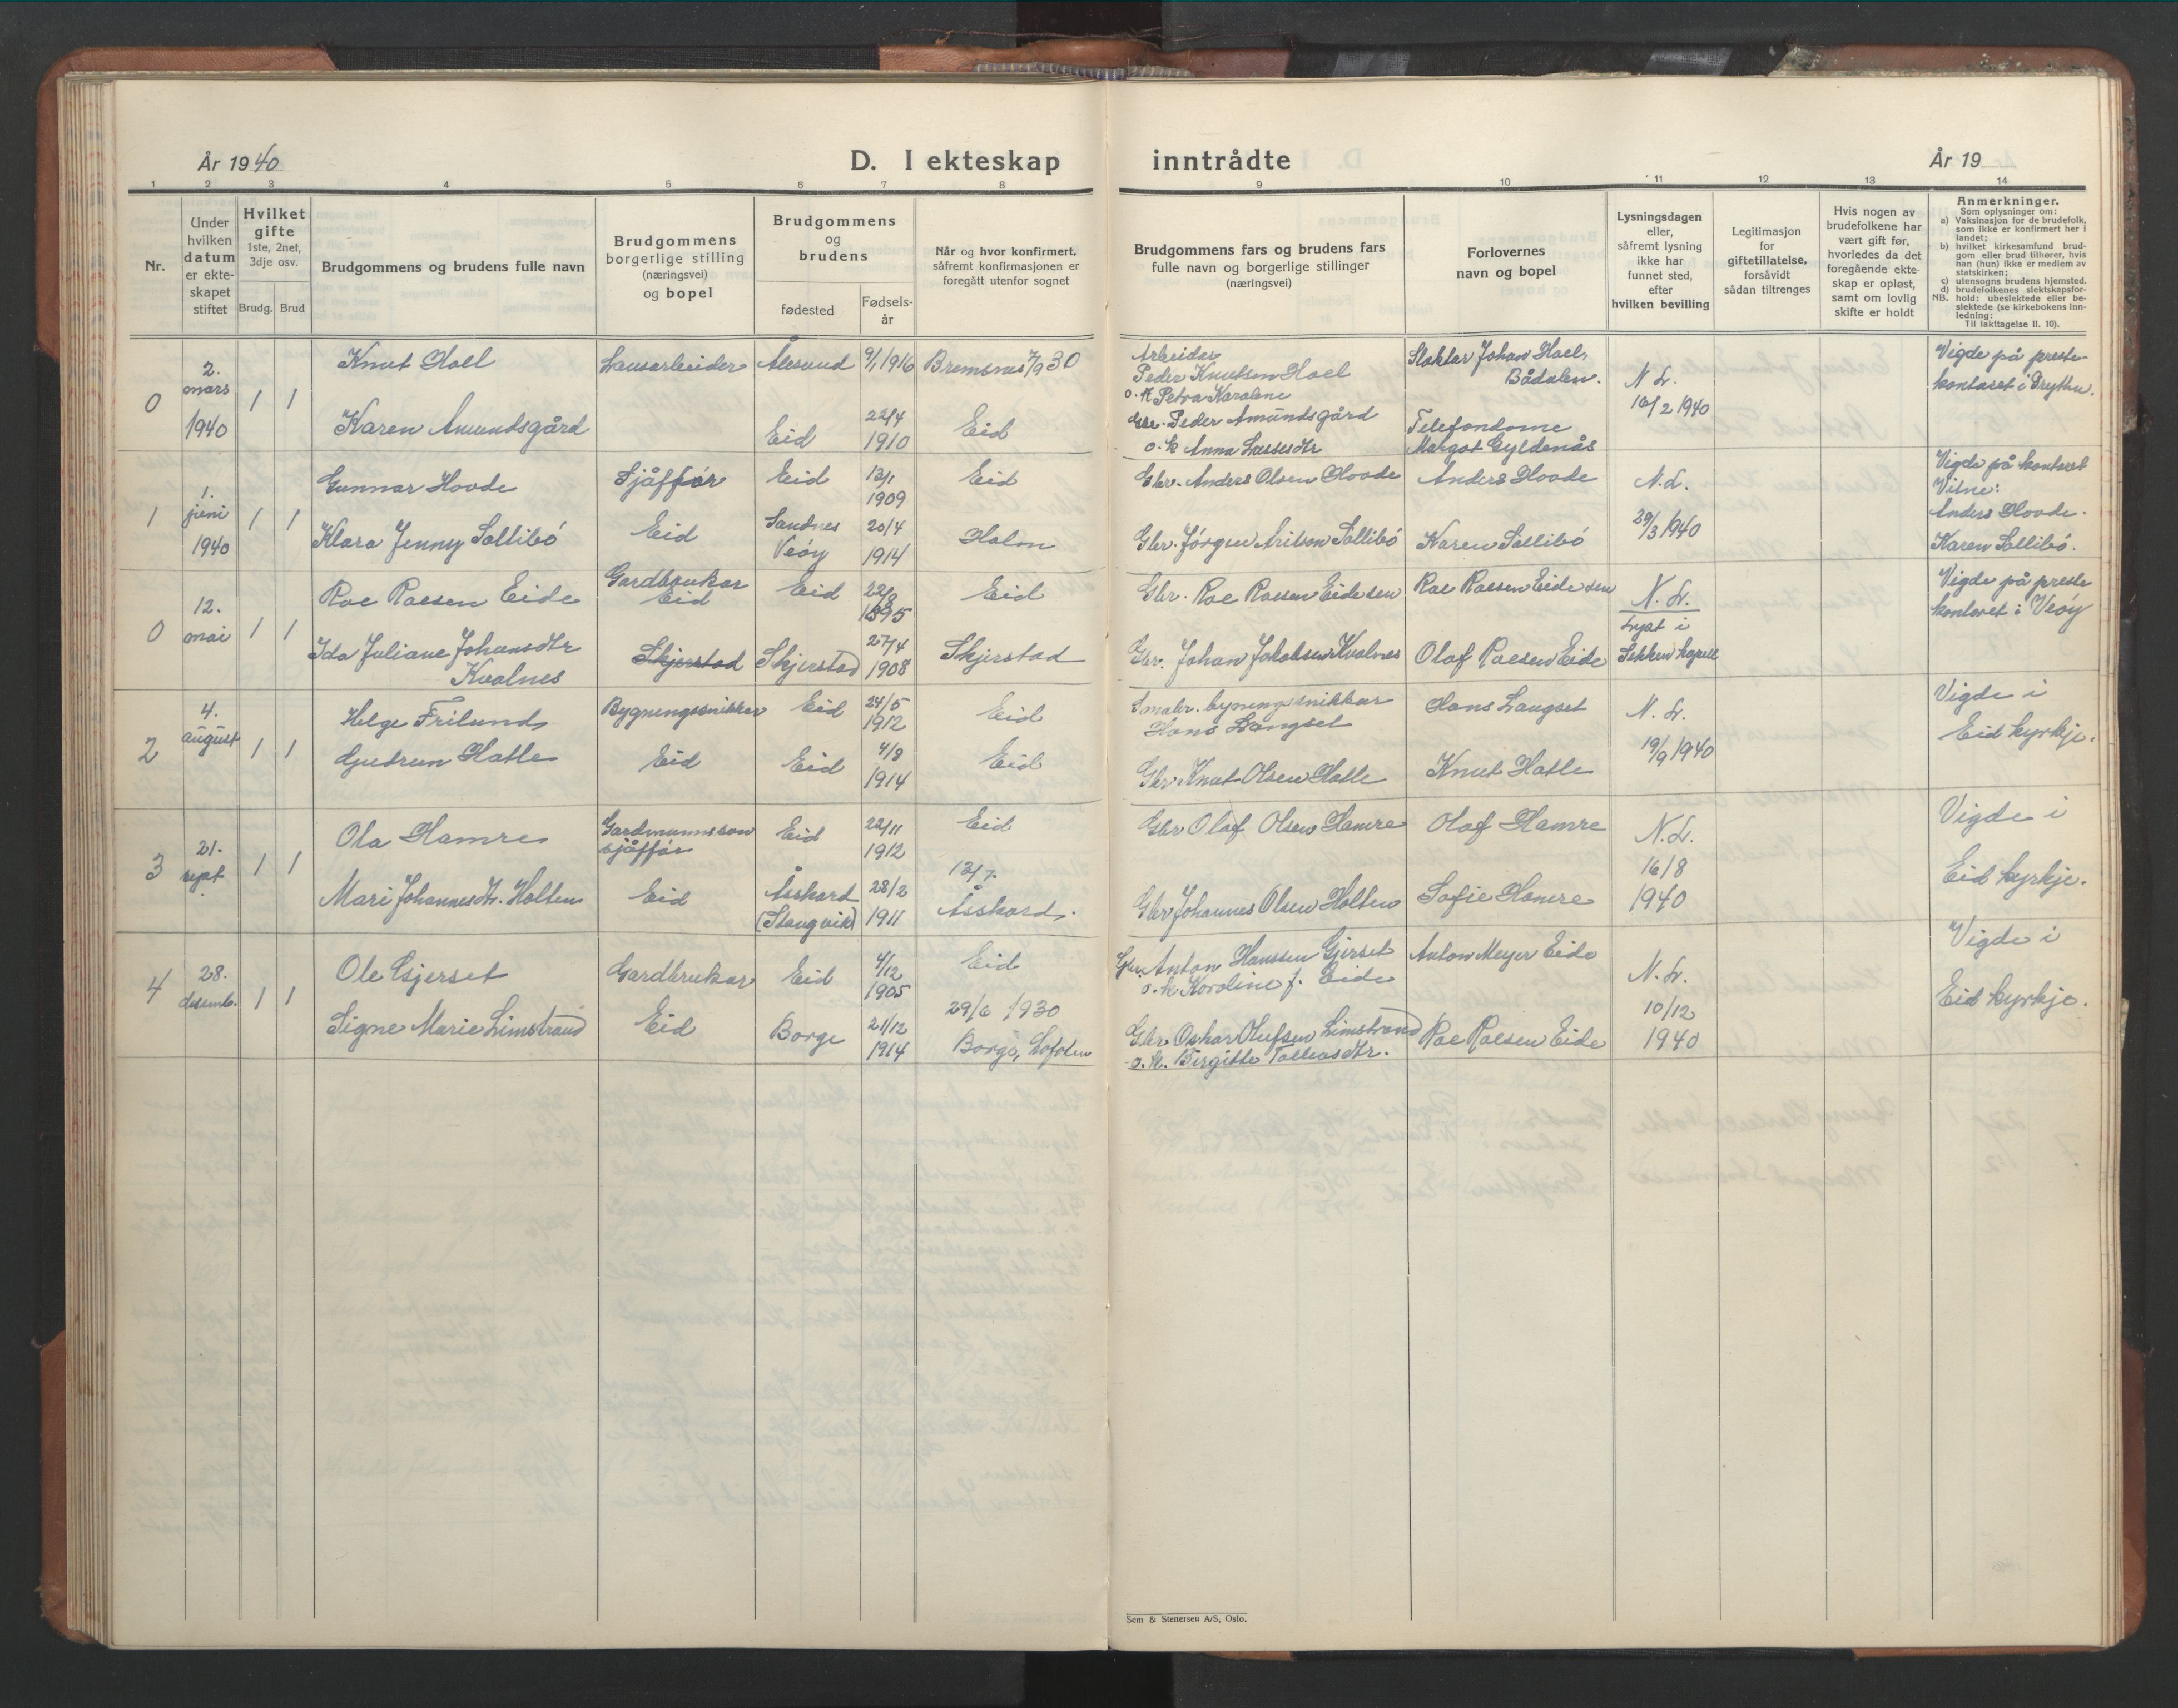 År 1940
D. I ekteskap inntrådte
År 19
1 2 3 4 5 6 7 8 9 10 11 12 13 14
Nr.
Under
hvilken
datum
er ekte-
skapet
stiftet
Hvilket
gifte
1ste, 2net,
3dje osv.
Brudg. Brud
Brudgommens og brudens fulle navn
Brudgommens
borgerlige stilling
(næringsvei)
og bopel
Brudgommens
og
brudens
fødested
Fødsels-
år
Når og hvor konfirmert,
såfremt konfirmasjonen er
foregått utenfor sognet
Brudgommens fars og brudens fars
fulle navn og borgerlige stillinger
(næringsvei)
Forlovernes
navn og bopel
Lysningsdagen
eller,
såfremt lysning
ikke har
funnet sted,
efter
hvilken bevilling
Legitimasjon
for
giftetillatelse,
forsåvidt
sådan tiltrenges
Hvis nogen av
brudefolkene har
vært gift før,
hvorledes da det
foregående ekte-
skap er opløst,
samt om lovlig
skifte er holdt
Anmerkninger.
Som oplysninger om:
a) Vaksinasjon for de brudefolk,
som ikke er konfirmert her i
landet;
b) hvilket kirkesamfund brud-
gom eller brud tilhører, hvis
han (hun) ikke er medlem av
statskirken;
c) utensogns brudens hjemsted.
d) brudefolkenes slektskapsfor-
NB. hold: ubeslektede eller be-
slektede (se kirkebokens inn-
ledning:
Til iakttagelse II. 10).
0
2.
mars
1940
1 1
Knut Hoel
Karen Amundsgård
Lausarbeider
Ålesund
9/1 1916
Bremsnes 7/9 30
Eid
22/4
1910
Eid
Arbeidar
Peder Knutsen Hoel
o. k Petra Karoline
Gbr. Peder Amundsgård
o. k Anna Lassesdtr
Slaktar Johan Hoel,
Bådalen.
Telefondame
Margot Gyldenås
N. L.
16/2 1940
Vigde på preste-
kontoret i Grytten.
1
1.
juni
1940
1 1
Gunnar Hovde
Klara Jenny Sollibø
Sjåffør
Eid
Eid
13/1
1909
Eid
Sandnes
Veøy
20/4
1914
Holm
Gbr. Anders Olsen Hovde
Gbr. Jørgen Arilsen Sollibø
Anders Hovde
Karen Sollibø
N. L.
29/3 1940
Vigde på kontoret
Vitne:
Anders Hovde.
Karen Sollibø.
0
12.
mai
1 1
Roe Roesen Eide
Ida Juliane Johansdtr
Kvalnes
Gardbrukar
Eid
Skjerstad
Eid
22/8
1895
Eid
Skjerstad
27/4
1908
Skjerstad
Gbr. Roe Roesen Eide sen
Gbr. Johan Jakobsen Kvalnes
Roe Roesen Eide sen
Olaf Roesen Eide
N. L.
Lyst i
Sekken kapell
Vigde på preste
kontoret i Veøy
2
4.
august
1 1
Helge Frilund
Gudrun Hatle
Bygningssnikkar
Eid
Eid
24/5
1912
Eid
Eid
4/8
1914
Eid
Smabr. bygningssnikkar
Hans Langset
Gbr Knut Olsen Hatle
Hans Langset
Knut Hatle
N. L.
19/9 1940
Vigde i
Eid kyrkje.
3
21.
sept.
1 1
Ola Hamre
Mari Johannesdtr. Holten
Gardmannsson
sjåffør
Eid
Eid
22/11
1912
Eid
Åsskard
(Stangvik)
28/2
1911
13/7.
Åsskard.
Gbr Olaf Olsen Hamre
Gbr Johannes Olsen Holten
Olaf Hamre
Sofie Hamre
N. L.
16/8
1940
Vigde i
Eid kyrkje.
4
28.
desemb.
1 1
Ole Gjerset
Signe Marie Limstrand
Gardbrukar
Eid
Eid
4/12
1905
Eid
Borge
21/12
1914
29/6 1930
Borge, Lofoten
Gbr. Anton Hanssen Gjerset
o. k Karoline f. Eide
Gbr Oskar Olufsen Limstrand
o. k. Birgitte Tolleasdtr.
Anton Meyer Eide
Roe Roesen Eide
N. L.
10/12
1940
Vigde i
Eid kyrkje.
Sem & Stenersen A/S, Oslo.